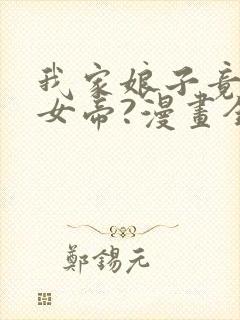 我家娘子竟
女帝?漫畫全
鄭錫元